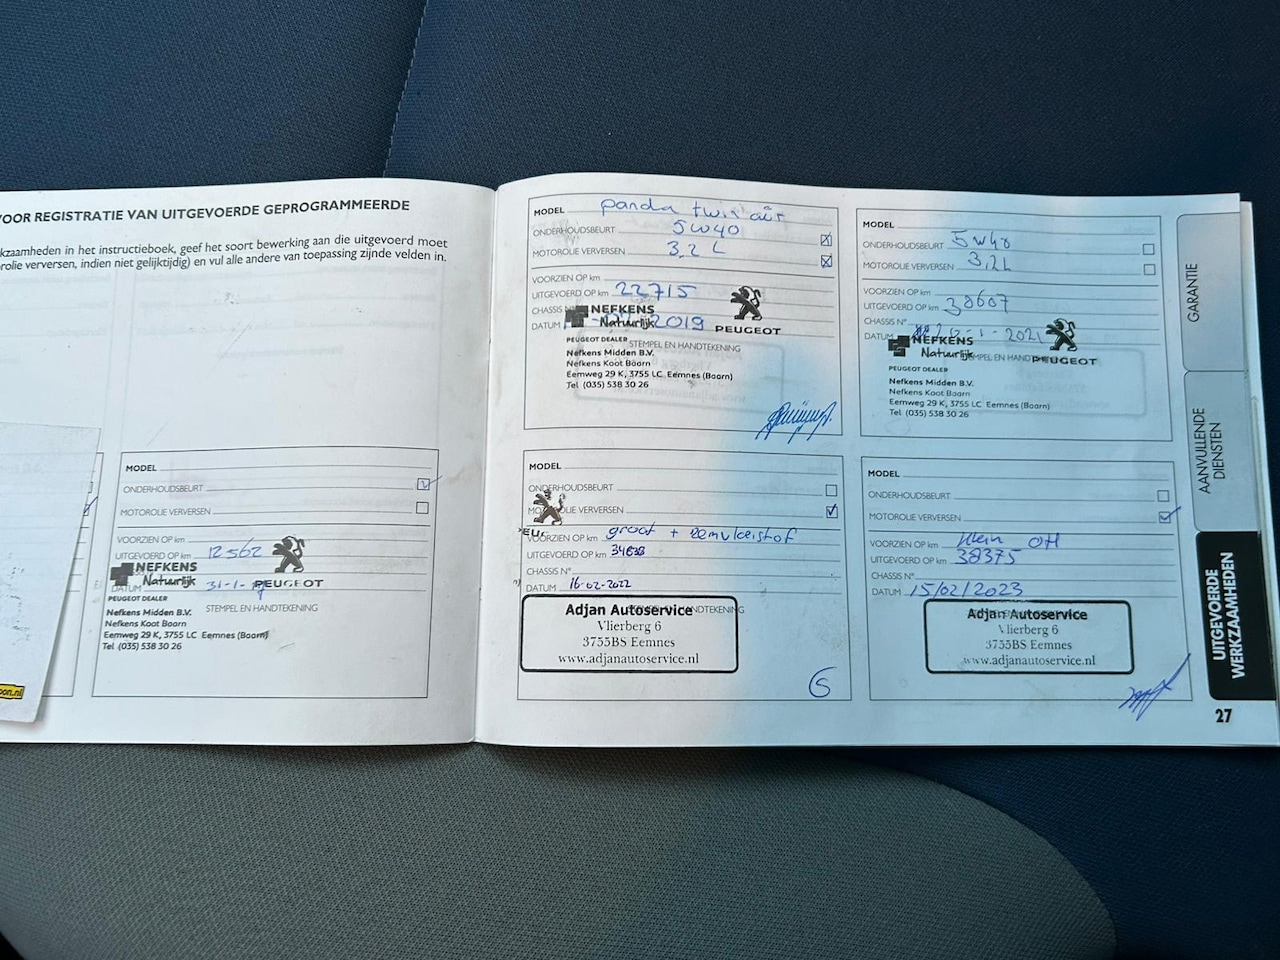 VOOR REGISTRATIE VAN UITGEVOERDE GEPROGRAMMEERDE
kzaamheden in het instructieboek, geef het soort bewerking aan die uitgevoerd moet
rolie verversen, indien niet gelijktijdig) en vul alle andere van toepassing zijnde velden in.
MODEL
ONDERHOUDSBEURT
MOTOROLIE VERVERSEN
VOORZIEN OP km
UITGEVOERD OP km 12562
NEFKENS
Natuurlijk
DATUM 31-1-
PEUGEOT
PEUGEOT DEALER
STEMPEL EN HANDTEKENING
Nefkens Midden B.V.
Nefkens Koot Baarn
Eemweg 29 K, 3755 LC Eemnes (Baarn)
Tel (035) 538 30 26
oon.nl
MODEL panda twin air
ONDERHOUDSBEURT 5W40
MOTOROLIE VERVERSEN 3,2 L
VOORZIEN OP km
UITGEVOERD OP km 22715
CHASSIS N
NEFKENS
Natuurlijk
DATUM 2019
PEUGEOT
PEUGEOT DEALER
STEMPEL EN HANDTEKENING
Nefkens Midden B.V.
Nefkens Koot Baarn
Eemweg 29 K, 3755 LC Eemnes (Baarn)
Tel (035) 538 30 26
MODEL
ONDERHOUDSBEURT 5W40
MOTOROLIE VERVERSEN 3,2L
VOORZIEN OP km
UITGEVOERD OP km 30607
CHASSIS N°
DATUM -1-2021
NEFKENS
Natuurlijk
PEUGEOT
PEUGEOT DEALER
Nefkens Midden B.V.
Nefkens Koot Baarn
Eemweg 29 K, 3755 LC Eemnes (Baarn)
Tel (035) 538 30 26
MODEL
ONDERHOUDSBEURT
MOTOROLIE VERVERSEN
VOORZIEN OP km groot + remvloeistof
UITGEVOERD OP km
CHASSIS N°
DATUM 16-02-2022
Adjan Autoservice
Vlierberg 6
3755BS Eemnes
www.adjanautoservice.nl
MODEL
ONDERHOUDSBEURT
MOTOROLIE VERVERSEN
VOORZIEN OP km klein OH
UITGEVOERD OP km 38375
CHASSIS N°
DATUM 15/02/2023
Adjan Autoservice
Vlierberg 6
3755BS Eemnes
www.adjanautoservice.nl
GARANTIE
AANVULLENDE
DIENSTEN
UITGEVOERDE
WERKZAAMHEDEN
27